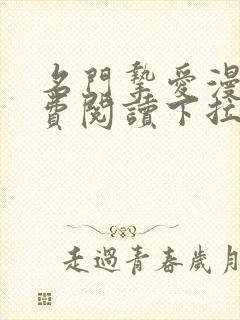 名門摯愛漫
費閱讀下拉
走過青春歲月